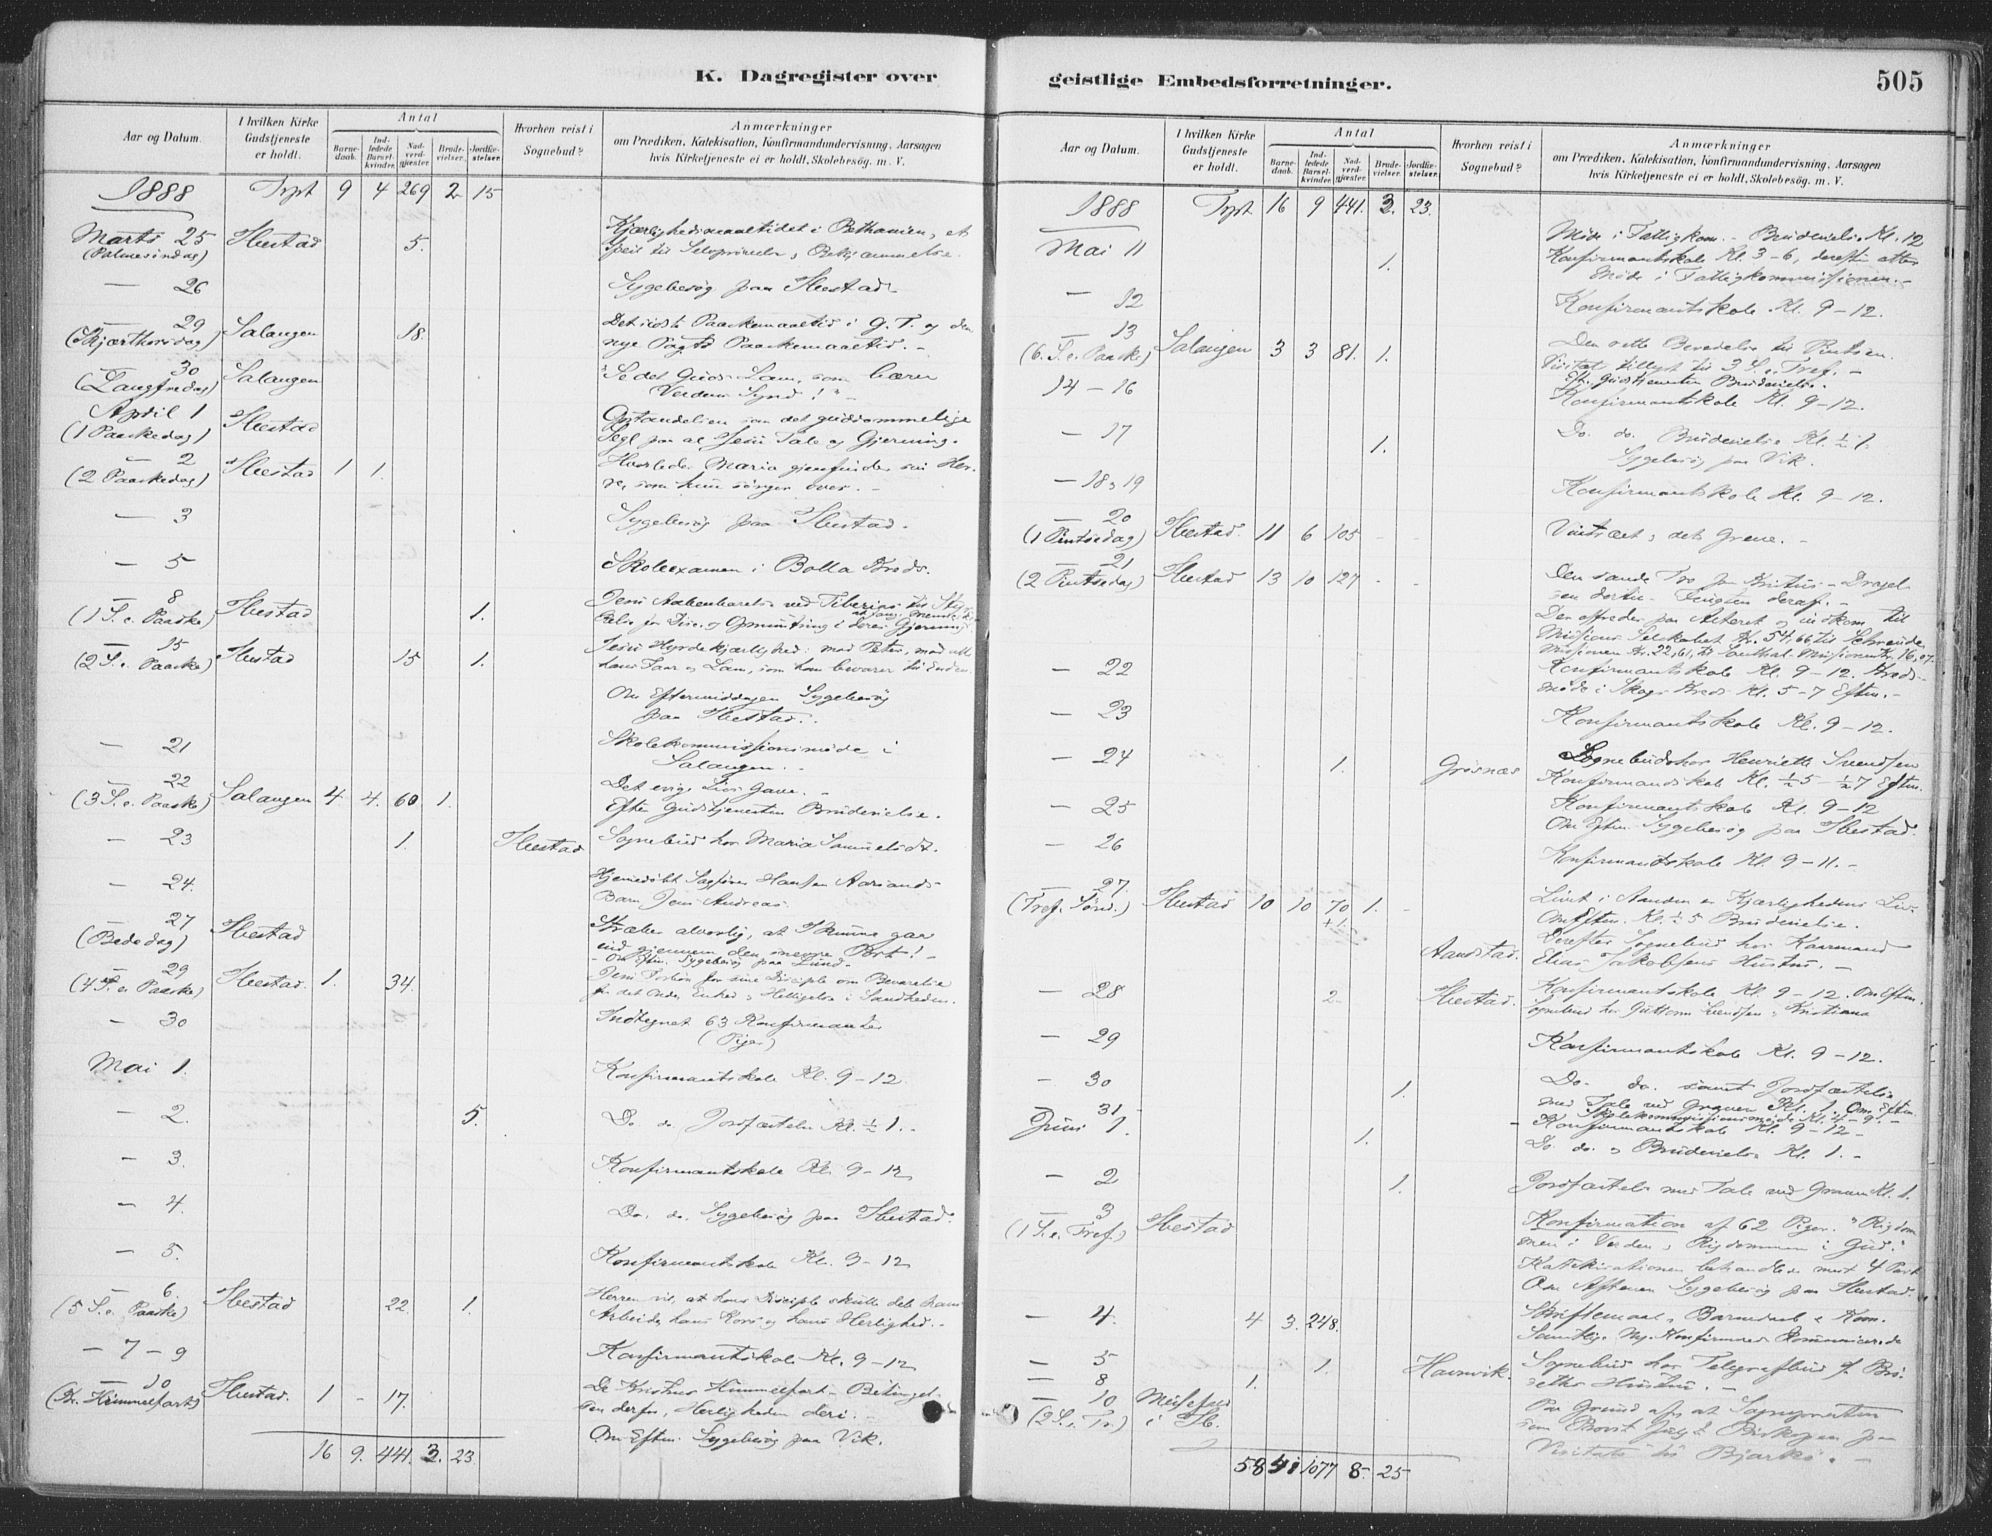 K. Dagregister over
Aar og Datum.
I hvilken Kirke Gudstjeneste er holdt.
Antal
Barne-daab.
Ind-ledede Barsel-kvinder.
Nad-verd-gjæster.
Brude-vielser.
Jordfæ-stelser.
Hvorhen reist i Sognebud?
Anmærkninger
om Prædiken, Katekisation, Konfirmandundervisning, Aarsagen
hvis Kirketjeneste ei er holdt, Skolebesøg. m. V.
1888 Trpt 9 4 269 2 15
Marts 25 Ibestad 5. Kjærlighedsmaaltidet i Bethanien, et
(Palmesöndag) Speil til Selvprövelse og Beskjæmmelse.
— 26 Sygebesög paa Ibestad
— 29 Salangen 18. Det sidste Paaskemaaltid i G. T. og den
(Skjærthorsdag) nye Pagts Paaskemaaltid. –
30 Salangen "Se det Guds Lam, som bærer
(Langfredag) Verdens Synd!" –
April 1 Ibestad Opstandelsen som det guddommelige
(1 Paaskedag) Segl paa al Jesu Tale og Gjerning.
— 2 Ibestad 1 1. Hvorledes Maria gjenfinder sin Her-
(2 Paaskedag) re, som hun sörger over. –
— 3 Sygebesög paa Ibestad.
— 5 Skoleexamen i Bolla Kreds.
— 8 Ibestad 1. Jesu Aabenbarelse ved Tiberias til Styr-
(1 S. e. Paaske) kelse for Disc. og Opmuntring i deres Gjerning
— 15 Ibestad 15 1. Jesu Hyrdekjærlighed: mod Peter, mod alle
(2 S. e. Paaske) hans Faar og Lam, som han bevarer til Enden.
Om Eftermiddagen Sygebesög
paa Ibestad.
— 21 Skolekommissionsmöde i
Salangen. –
— 22 Salangen 4. 4. 60 1. Det evige Livs Gave. –
(3 S. e. Paaske) Efter Gudstjenesten Brudevielse.
— 23 1. Ibestad Sognebud hos Maria Samuelsdt.
— 24. Hjemmedöbt Sagförer Hansen Aarsands
Barn Jens Andreas.
— 27 Ibestad Stræber alvorlig, at I kunne gaa
(Bededag) ind gjennem den snevre Port! –
– Om Eftm. Sygebesög paa Lund –
— 29 Ibestad. 1. 34. Jesu Forbön for sine Disciple om Bevarelse
(4 S. e. Paaske) fra det Onde, Enhed og Helligelse i Sandheden.
— 30 Indtegnet 63 Konfirmanter
(Piger)
Mai 1. Konfirmantskole Kl. 9–12.
— 2. 5. Do. do. Jordfæstelse Kl. ½ 1. –
— 3. Konfirmantskole Kl. 9–12
— 4. Do. do. Sygebesög paa Ibestad.
— 5. Konfirmantskole Kl. 9–12
— 6. Ibestad 22. 1. Herren vil, at hans Disciple skulle dele hans
(5 S. e. Paaske) Arbeide, hans Kors og hans Herlighed. –
— 7 – 9 Konfirmantskole Kl. 9–12
— 10 Ibestad. 1 – 17. De Kristnes Himmelfart – Betingel-
(Kr. Himmelfart) sen derfor, Herligheden deri. –
Om Eftm. Sygebesög paa Vik.
16 9. 441. 3. 23.
geistlige Embedsforretninger.
505
Aar og Datum.
I hvilken Kirke Gudstjeneste er holdt.
Antal
Barne-daab.
Ind-ledede Barsel-kvinder.
Nad-verd-gjæster.
Brude-vielser.
Jordfæ-stelser.
Hvorhen reist i Sognebud?
Anmærkninger
om Prædiken, Katekisation, Konfirmandundervisning, Aarsagen
hvis Kirketjeneste ei er holdt, Skolebesøg. m. V.
1888 Trpt. 16 9 441. 3. 23.
Mai 11 1. Möde i Fattigkom. – Brudevielse Kl. 12
Konfirmantskole Kl. 3–6, derefter atter
Möde i Fattigkommissionen. –
— 12 Konfirmantskole Kl. 9–12.
— 13 Salangen 3 3 81. 1. Den rette Beredelse til Pintsen.
(6. S. e. Paaske) Visitat tillyst til 3 S. e. Tref. –
Eft. Gudstjenesten Brudevielse.
14 – 16 Konfirmantskole Kl. 9–12.
— 17 1. Do. do. Brudevielse Kl. ½ 1.
Sygebesög paa Vik.
— 18 og 19 Konfirmantskole Kl. 9–12.
— 20 Ibestad. 11 6 105 – – Vintræet og dets Grene. –
(1 Pintsedag)
— 21 Ibestad 13 10 127 – – Den sande Tro paa Kristus –
(2 Pintsedag)
Der ofredes paa Alteret og indkom til
Missions Selskabet Kr. 54,66 til
Missionen Kr. 22,61, til Santhal Missionen Kr. 16,07.
— 22 Konfirmantskole Kl. 9–12. Kreds-
möde i Skogs Kreds Kl. 5–7 Eftm. –
— 23 Konfirmantskole Kl. 9–12.
— 24 1. Grösnæs Sognebud hos Henriette Svendsen
Konfirmandskole Kl. ½5 – ½7 Eftm.
— 25 Konfirmantskole Kl. 9–12
Om Eftm. Sygebesög paa Ibestad.
— 26 Konfirmantskole Kl. 9–11. –
— 27. Ibestad 10 10 70 1. – Livet i Aanden er Kjærlighedens Liv.
(Tref. Sönd.) +1. Om Eftm. Kl. ½ 5 Brudevielse.
Aandstad. Derefter Sognebud hos Kaarmand
Elias Jakobsens Hustru. –
— 28 2 Ibestad. Konfirmantskole Kl. 9–12. Om Eftm.
Sognebud hos Guttorm Svendsen og Kristiana
— 29 Konfirmantskole Kl. 9–12.
— 30 1. Do. do. samt Jordfæstelse
med Tale ved Graven Kl. 1. Om Eftm.
Skolekommissionsmöde Kl. 4–9. –
— 31 – Konfirmantskole Kl. 9–12 –
Juni 1. 1. Do. do. og Brudevielse Kl. 1. –
— 2 1. Jordfæstelse med Tale ved Graven Kl. 1.
— 3 Ibestad Konfirmation af 62 Piger. "Rigdom-
(1 S. e. Tref.) men i Verden og Rigdommen i Gud."
Katekisationen behandlede mest 4 Part
Om Aftenen Sygebesög paa Ibestad.
— 4. 4 3. 248. Skriftemaal, Barnedaab & Kom.
Samtlige Ny-Konfirmerede kommunicerede
— 5 1. Havnvik. Sognebud hos Telegrafbud
Hustru. –
— 8 1.
— 10 Messefald Paa Grund af, at Sognepresten
(2 S. e. Tr.) i Ib. som Provst fulgte Biskopen paa
Visitats til Bjarkö. –
58 41 1077 8. 25